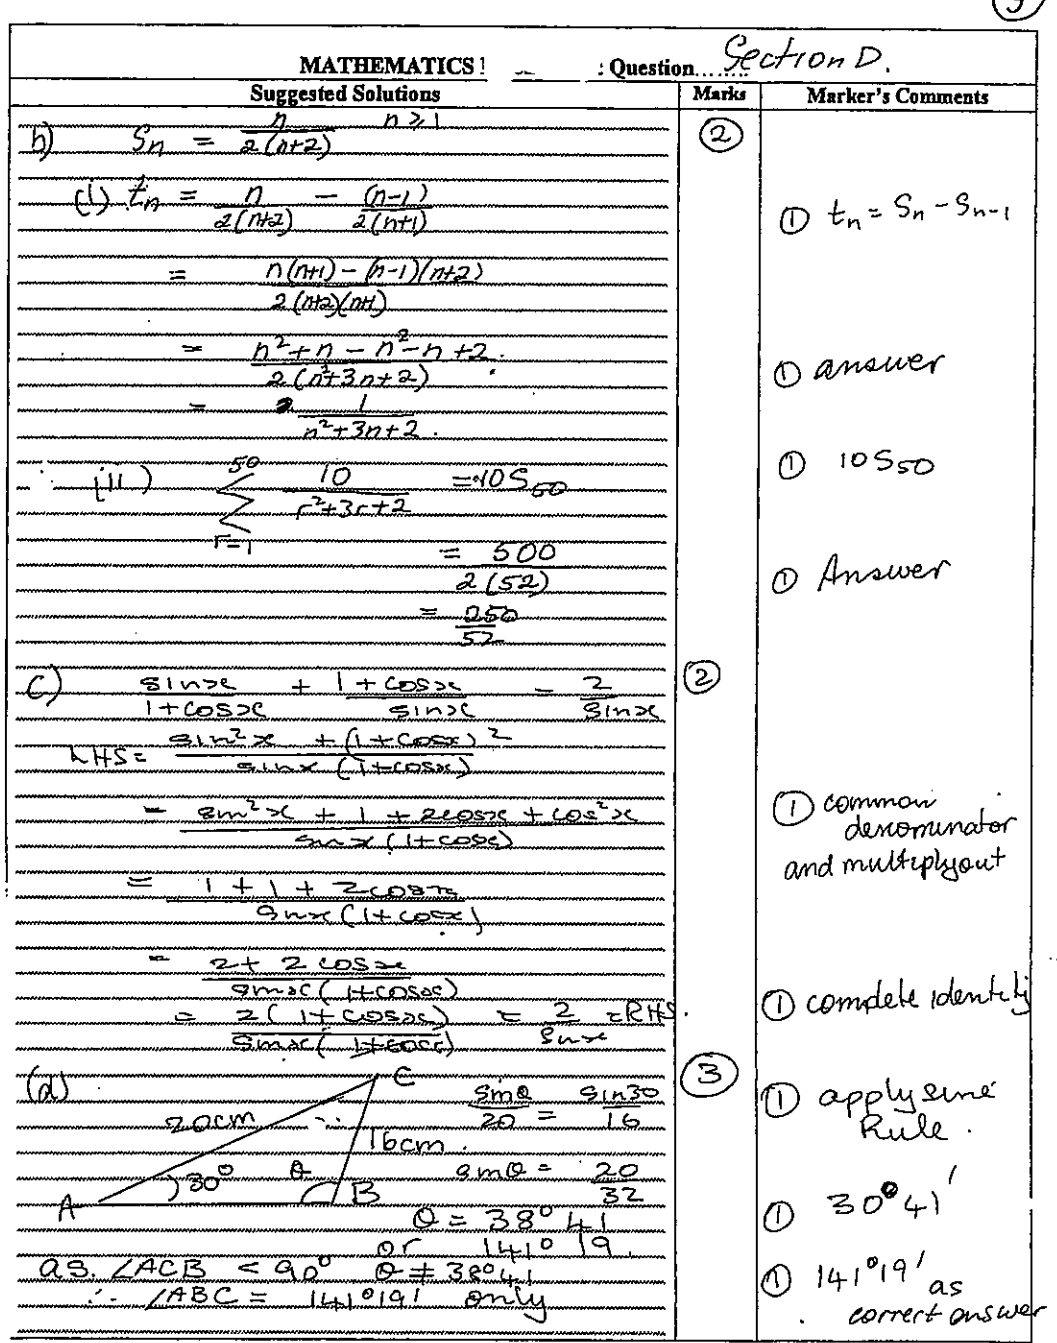 9
MATHEMATICS : Question..... Section D.
Suggested Solutions Marks Marker's Comments
b) Sn = n/2(n+2) n ≥ 1 ②
(i) tn = n/2(n+2) − (n-1)/2(n+1) ① tn = Sn - Sn-1
= n(n+1) − (n-1)(n+2)/2(n+2)(n+1)
= n² + n − n² − n + 2./2(n²+3n+2) ① answer
= 1/n²+3n+2.
(ii) 50 Σ r=1 10/r²+3r+2 = 10 S50 ① 10 S50
= 500/2(52) ① Answer
= 250/52
c) sinx/1+cosx + 1+cosx/sinx = 2/sinx ②
LHS = sin²x + (1+cosx)²/sinx (1+cosx)
= sin²x + 1 + 2cosx + cos²x/sinx (1+cosx) ① common denominator and multiply out
= 1 + 1 + 2cosx/sinx (1+cosx)
= 2 + 2 cosx/sinx (1+cosx)
= 2(1+cosx)/sinx(1+cosx) = 2/sinx = RHS. ① complete identity
(d) C ③
20cm sinθ/20 = sin30/16 ① apply sine Rule.
16cm.
30° θ sinθ = 20/32
A B
θ = 38° 41 ① 30° 41'
or 141° 19.
as. ∠ACB < 90° θ ≠ 38°41
∴ ∠ABC = 141°19' only ① 141°19' as correct answer